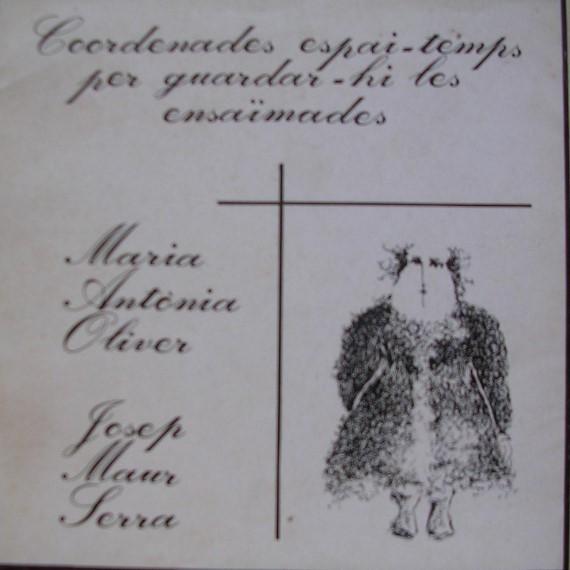 Coordenades espai-temps
per guardar-hi les
ensaïmades
Maria
Antònia
Oliver
Josep
Maur
Serra